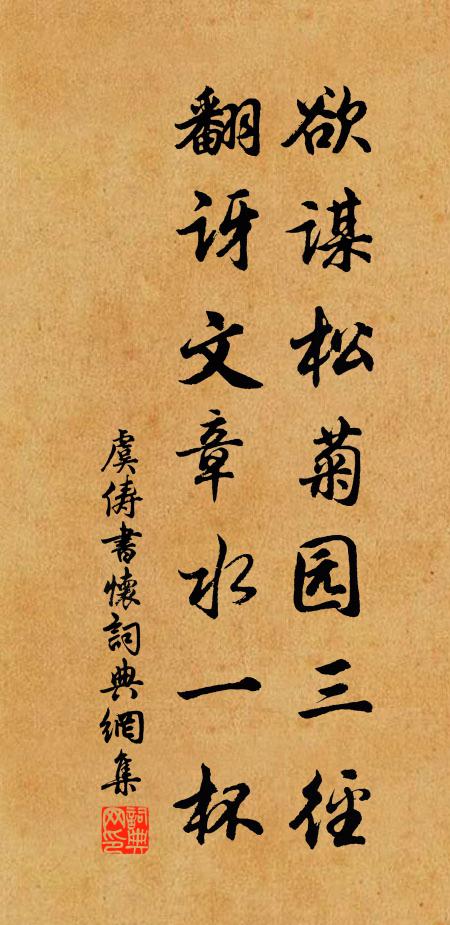 欲谋松菊园三径
翻讶文章水一杯
虞俦書懷詞典網集
詞典网印